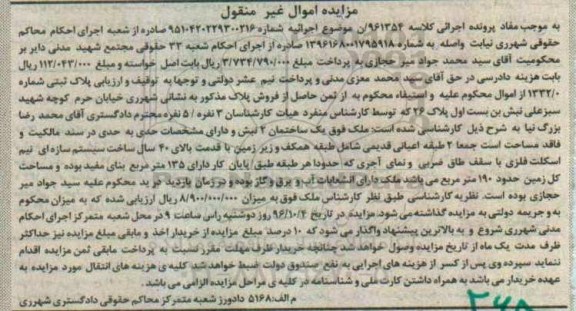 مزایده اموال غیر منقول
به موجب مفاد پرونده اجرائی کلاسه ۹۶۱۳۵۴/ن موضوع اجرائیه شماره ۹۵۱۰۴۲۰۲۲۹۳۰۰۲۱۶ صادره از شعبه اجرای احکام محاکم
حقوقی شهرری نیابت واصله به شماره ۱۳۹۶۱۶۸۰۰۱۷۹۵۹۱۸ صادره از اجرای احکام شعبه ۲۲ حقوقی مجتمع شهید مدنی دایر بر
محکومیت آقای سید محمد جواد میر حجازی به پرداخت مبلغ ۳/۷۳۴/۷۹۰/۰۰۰ ریال بابت اصل خواسته و مبلغ ۱۱۲/۰۴۳/۰۰۰ ریال
بابت هزینه دادرسی در حق آقای سید محمد معزی مدنی و پرداخت نیم عشر دولتی و توجها به توقیف و ارزیابی پلاک ثبتی شماره
۱۳۳۲/۰ از اموال محکوم علیه و استیفاء محکوم به از ثمن حاصل از فروش پلاک مذکور به نشانی شهرری خیابان حرم کوچه شهید
سبزعلی نبش بن بست اول پلاک ۲۶ که توسط کارشناس منفرد هیات کارشناسان ۳ نفره / ۵ نفره محترم دادگستری آقای محمد رضا
بزرگ نیا به شرح ذیل کارشناسی شده است: ملک فوق یک ساختمان ۲ نبش و دارای مشخصات حدی به حدی در سند مالکیت و
فاقد مساحت است جمعا ۲ طبقه اعیانی قدیمی شامل طبقه همکف و زیر زمین با قدمت بالای ۴۰ سال ساخت سیستم سازه ای نیم
اسکلت فلزی با سقف طاق ضربی و نمای آجری که حدودا هر طبقه طبق پایان کار دارای ۱۳۵ متر مربع بنای مفید بوده و مساحت
کل زمین حدود ۱۹۰ متر مربع می باشد ملک دارای انشعابات آب و برق و گاز بوده و در زمان بازدید در ید محکوم علیه سید جواد میر
حجازی بوده است. نظریه کارشناسی طبق نظر کارشناس ملک فوق به میزان ۸/۹۰۰/۰۰۰/۰۰۰ ریال ارزیابی شده که به میزان محکوم
به و جریمه دولتی به مزایده گذاشته می شود. مزایده در تاریخ ۹۶/۱۰/۴ روز دوشنبه راس ساعت ۹ در محل شعبه متمرکز اجرای احکام
مدنی شهرری شروع و به بالاترین پیشنهاد واگذار می شود که ۱۰ درصد مبلغ مزایده از خریدار اخذ و مابقی مبلغ مزایده نیز حداکثر
ظرف مدت یک ماه از تاریخ مزایده وصول خواهد شد چنانچه خریدار ظرف مهلت مقرر نسبت به پرداخت مابقی ثمن مزایده اقدام
ننماید سپرده وی پس از کسر از هزینه های اجرایی به نفع صندوق دولت ضبط خواهد شد. کلیه ی هزینه های انتقال مورد مزایده به
عهده خریدار می باشد به همراه داشتن کارت ملی و شناسنامه در کلیه ی مراحل مزایده الزامی می باشد.
م الف: ۵۱۶۸ دادورز شعبه متمرکز محاکم حقوقی دادگستری شهرری